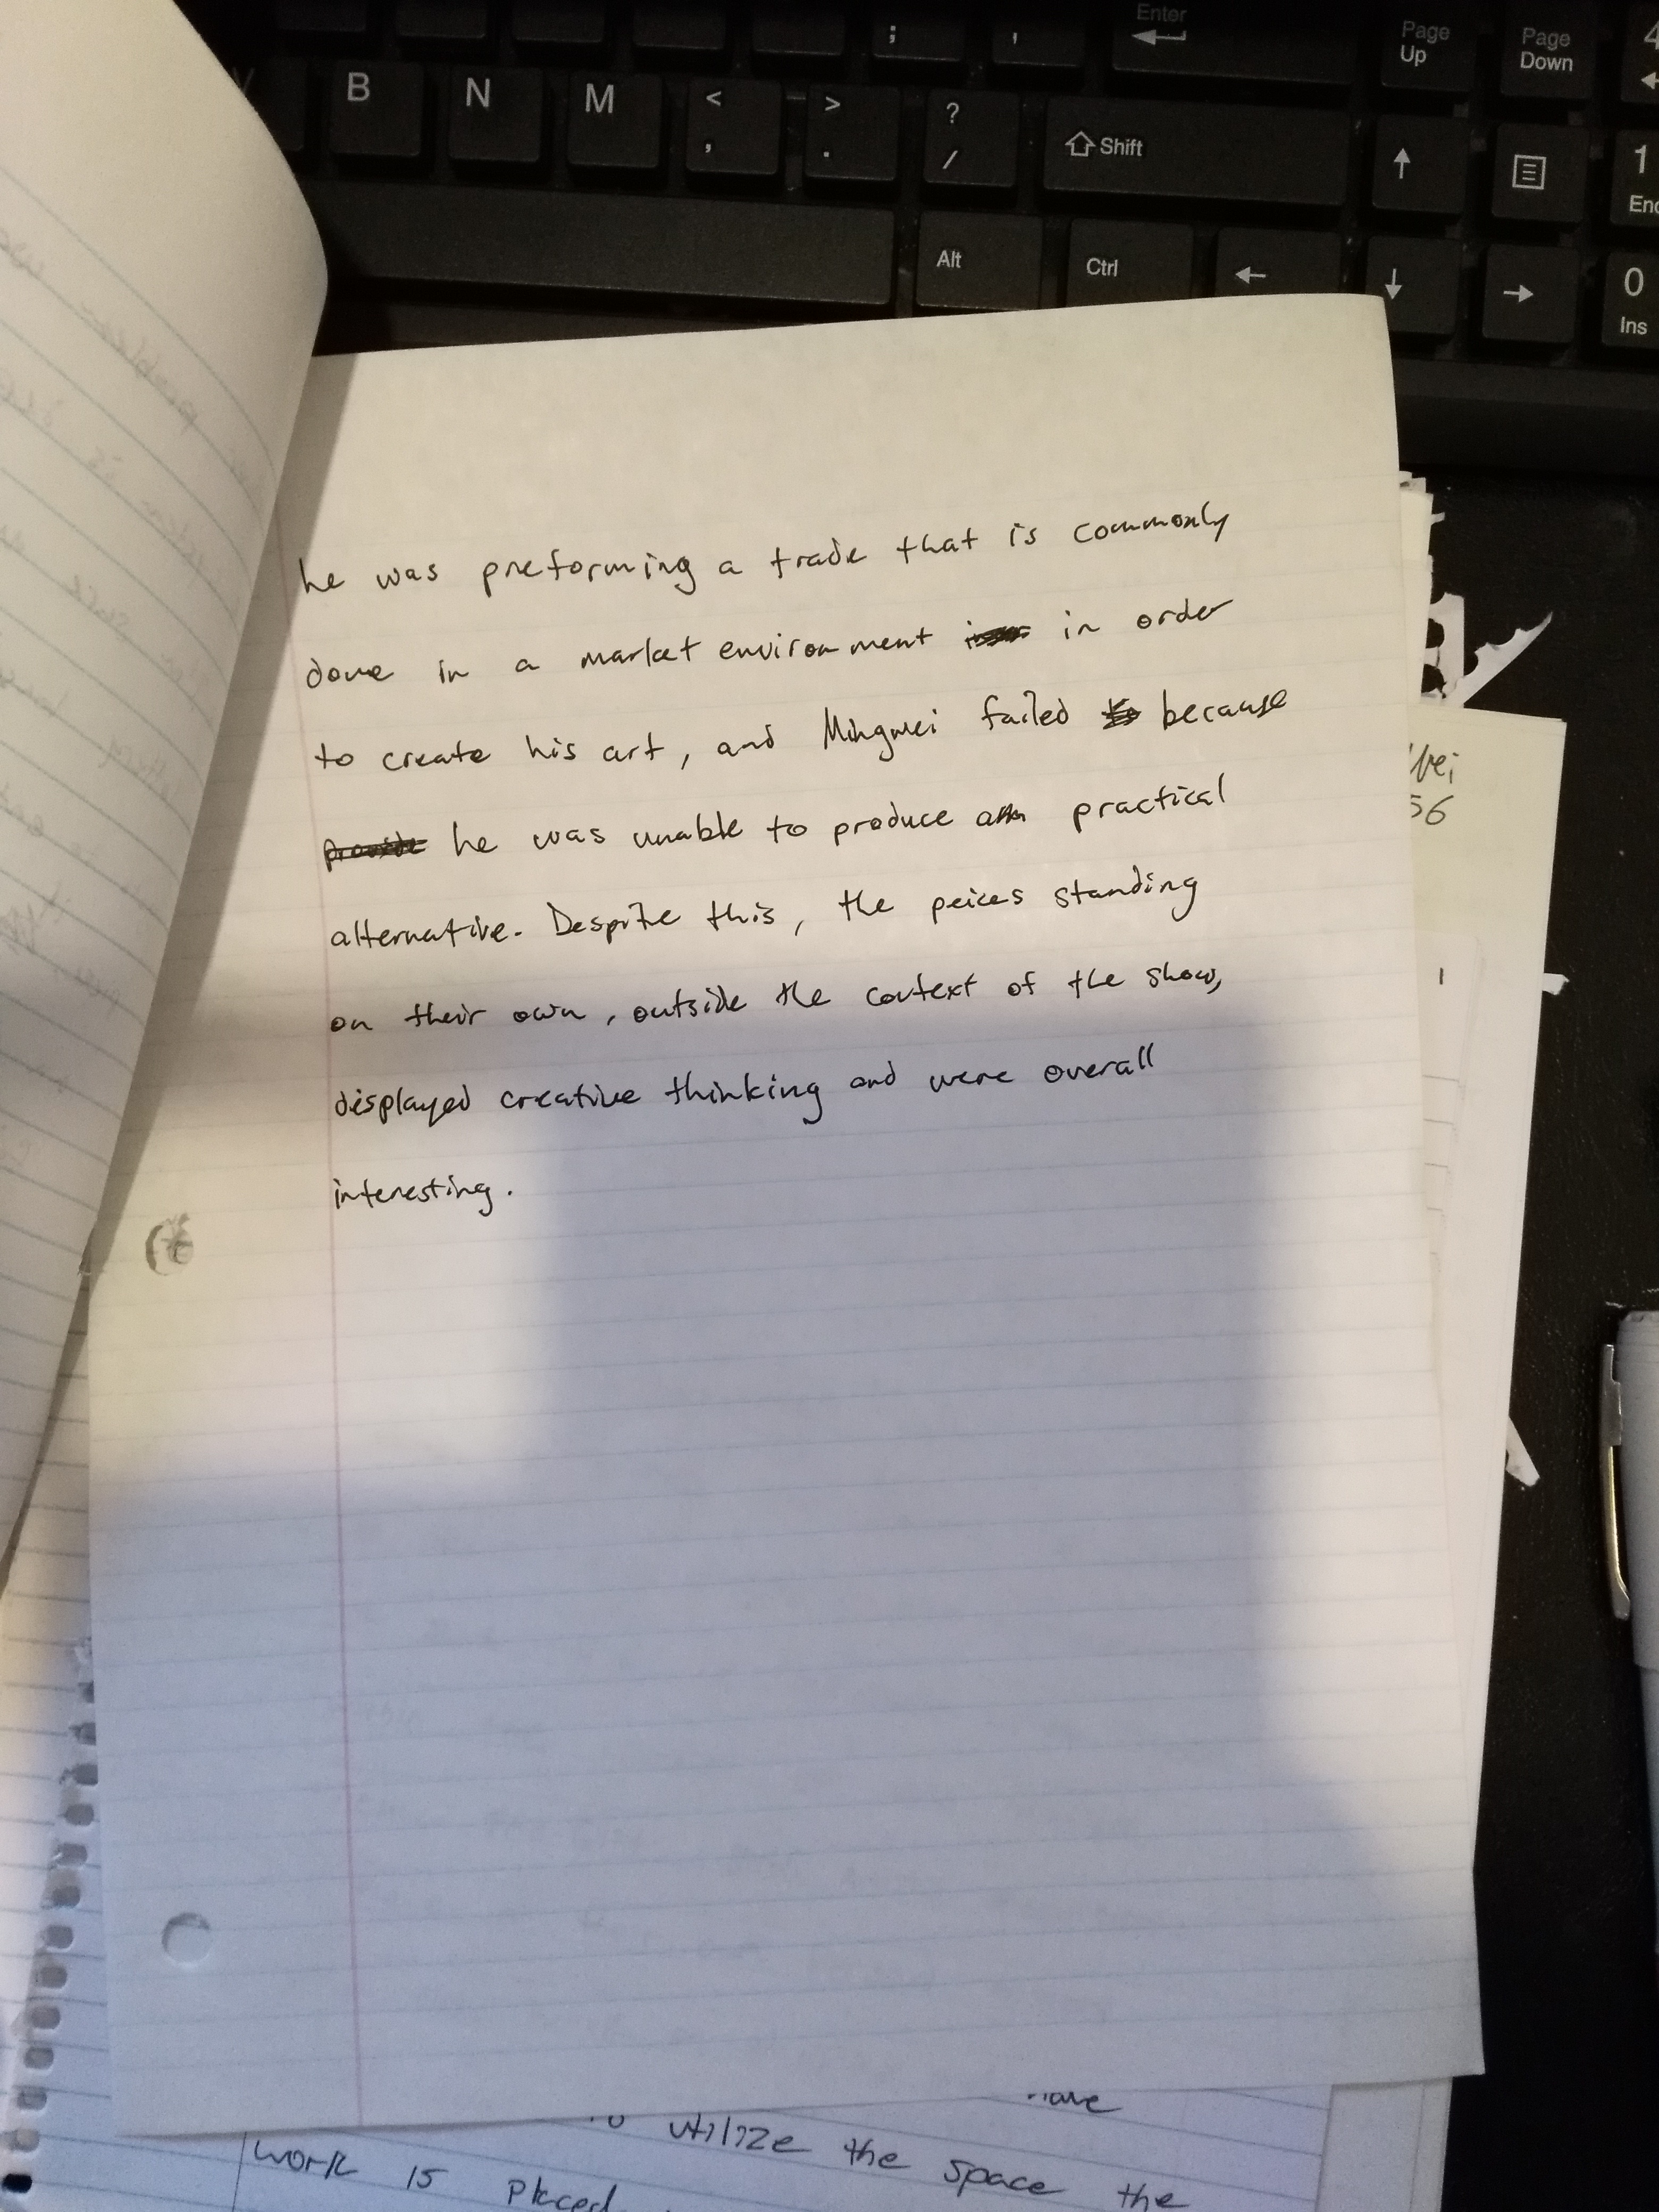 Enter
; ,
Page Up
Page Down
4
B N M < , > . ? / Shift
1
End
Alt Ctrl
0
Ins
he was preforming a trade that is commonly
done in a market environment in order
to create his art, and Mingwei failed because
he was unable to produce a practical
alternative. Despite this, the peices standing
on their own, outside the context of the show,
displayed creative thinking and were overall
interesting.
Wei
56
have
to utilize the space the
work is placed